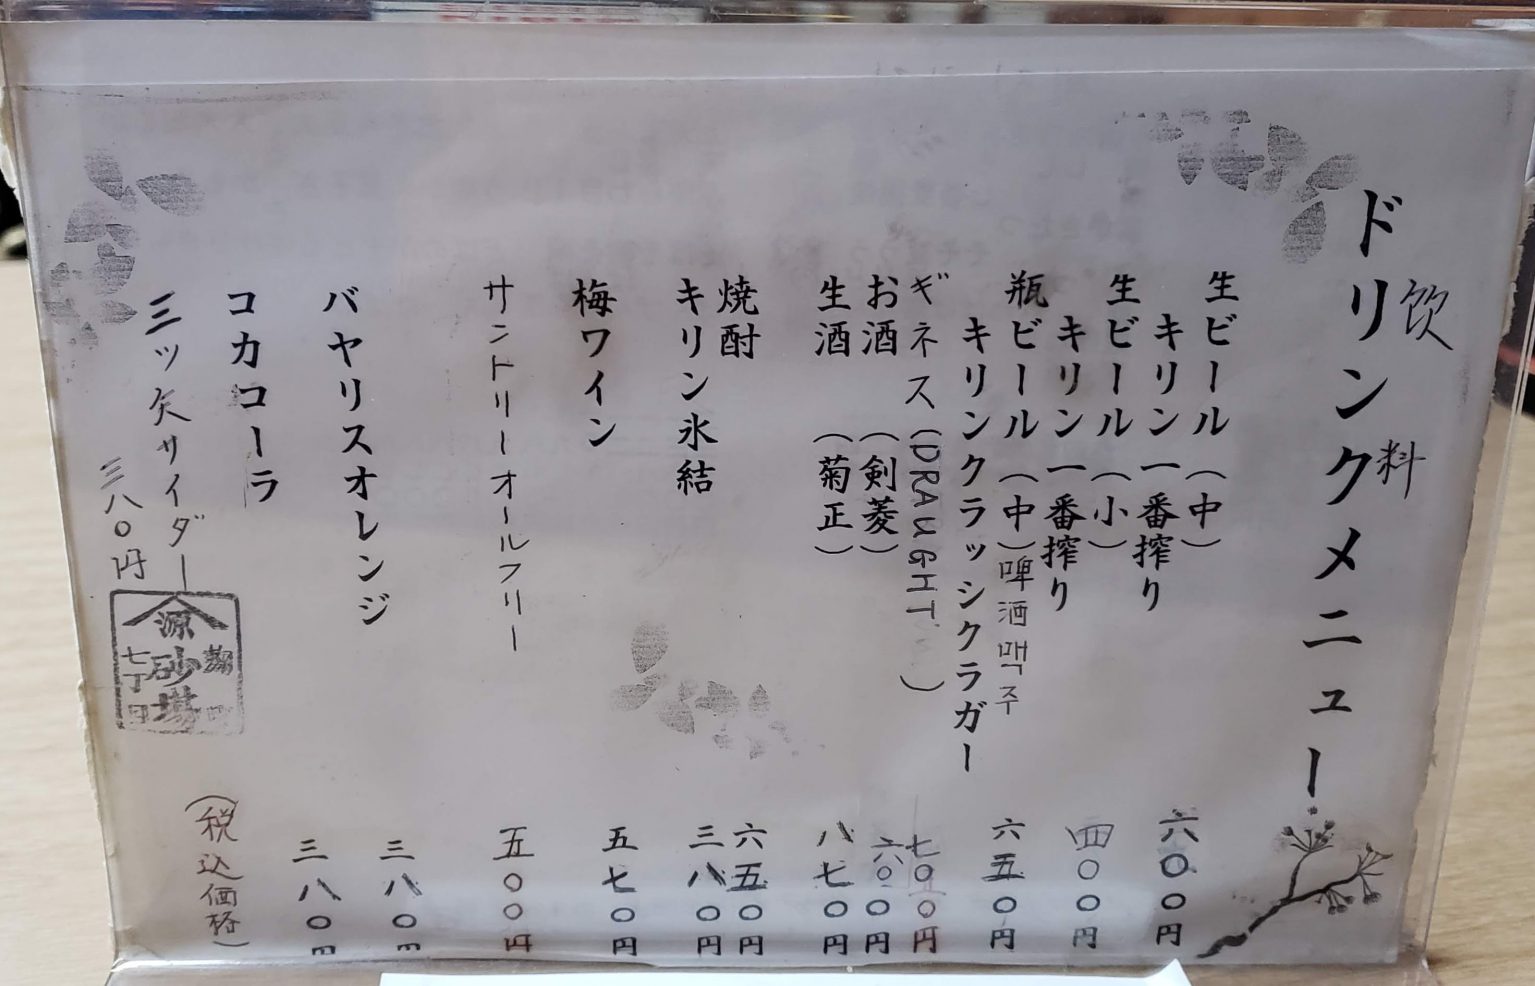 ドリンクメニュー
飲料
生ビール（中）
キリン一番搾り
六〇〇円
生ビール（小）
キリン一番搾り
四〇〇円
瓶ビール（中）啤酒 맥주
キリンクラッシクラガー
六五〇円
ギネス（DRAUGHT）
お酒（剣菱）
六〇〇円
生酒（菊正）
八七〇円
焼酎
六五〇円
キリン氷結
三八〇円
梅ワイン
五七〇円
サントリーオールフリー
五〇〇円
バヤリスオレンジ
三八〇円
コカコーラ
三八〇円
三ッ矢サイダー
三八〇円
（税込価格）
源
麹町
砂場
七丁目